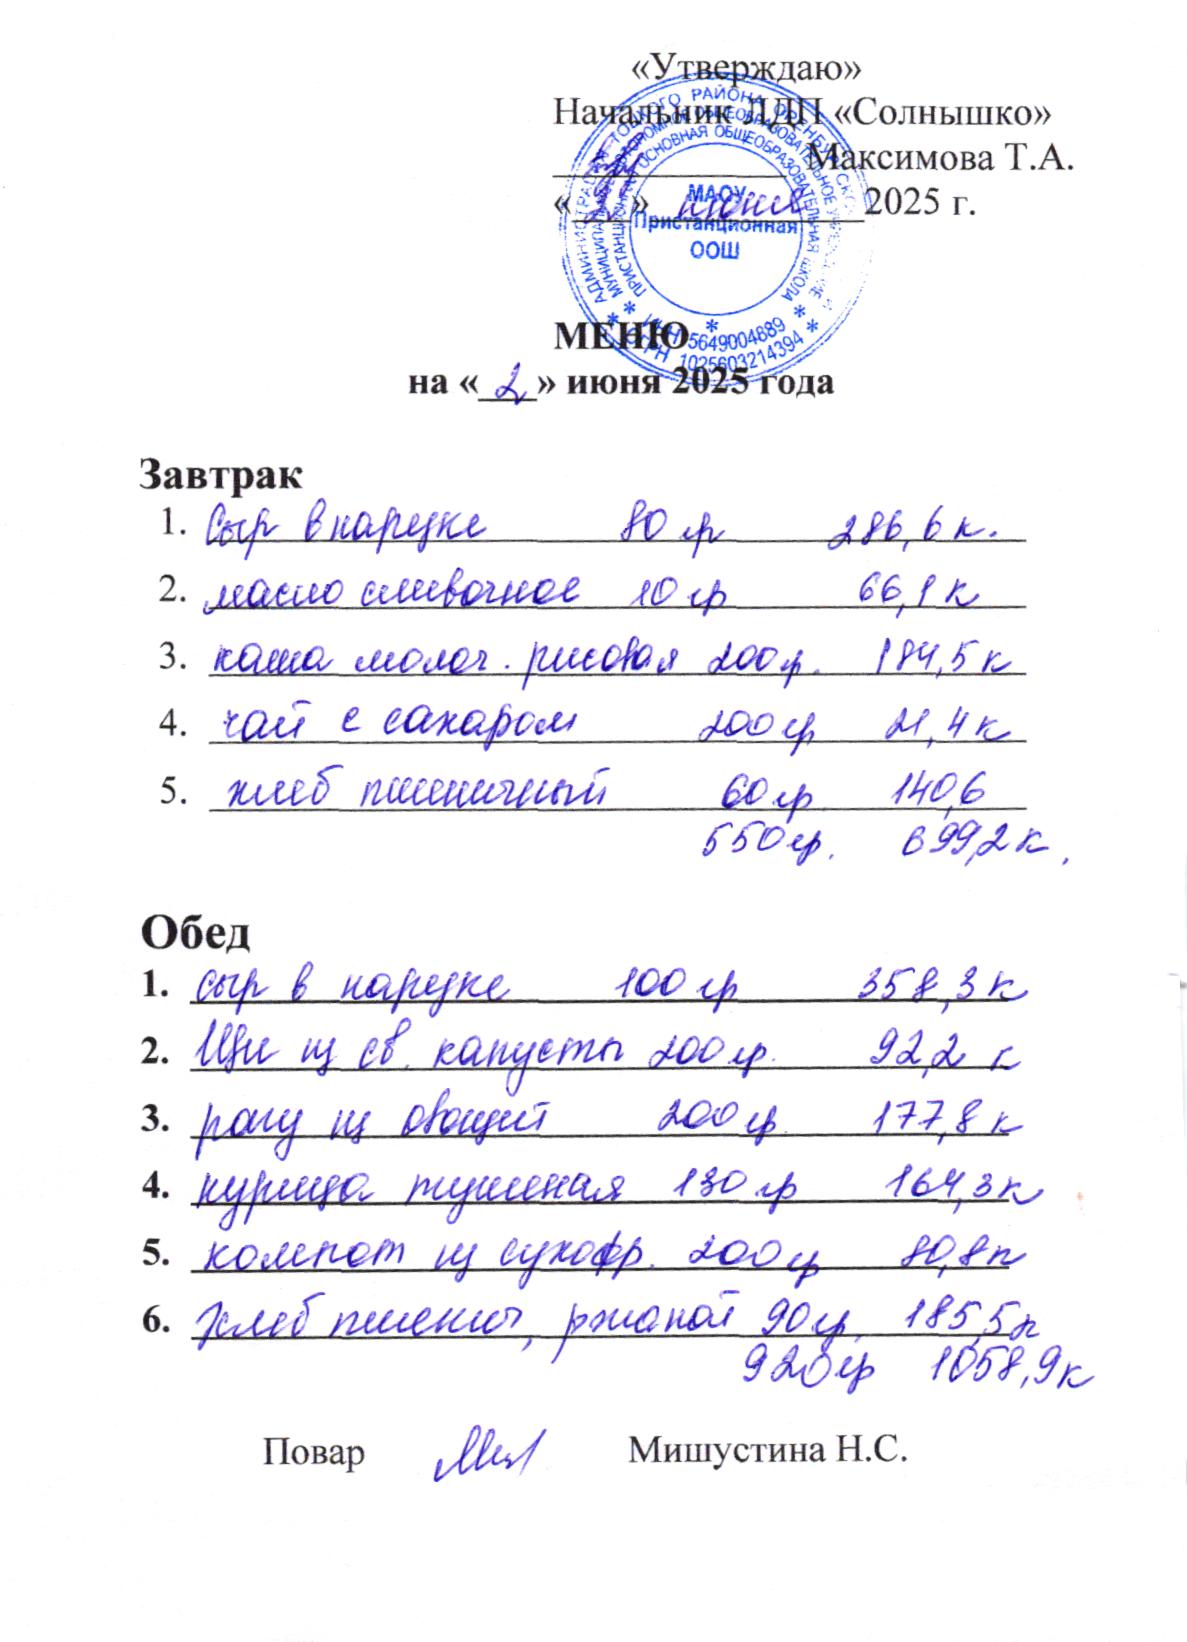 «Утверждаю»
Начальник ЛДП «Солнышко»
Максимова Т.А.
«2» июня 2025 г.
АДМИНИСТРАЦИЯ ТОЦКОГО РАЙОНА ОРЕНБУРГСКОЙ
МУНИЦИПАЛЬНОЕ АВТОНОМНОЕ ОБЩЕОБРАЗОВАТЕЛЬНОЕ УЧРЕЖДЕНИЕ
ПРИСТАНЦИОННАЯ ОСНОВНАЯ ОБЩЕОБРАЗОВАТЕЛЬНАЯ ШКОЛА
МАОУ
Пристанционная
ООШ
ИНН 5649004689
ОГРН 1025603214394
МЕНЮ
на «2» июня 2025 года
Завтрак
1. Сыр в нарезке 80 гр 286,6 к.
2. масло сливочное 10 гр 66,1 к
3. каша молоч. рисовая 200 гр. 184,5 к
4. чай с сахаром 200 гр 21,4 к
5. хлеб пшеничный 60 гр 140,6
550 гр. 699,2 к.
Обед
1. сыр в нарезке 100 гр 358,3 к
2. Щи из св. капусты 200 гр. 92,2 к
3. рагу из овощей 200 гр. 177,8 к
4. курица тушеная 130 гр 164,3 к
5. компот из сухофр. 200 гр 80,8 к
6. Хлеб пшенич, ржаной 90 гр. 185,5 к
920 гр 1058,9 к
Повар Мишустина Н.С.